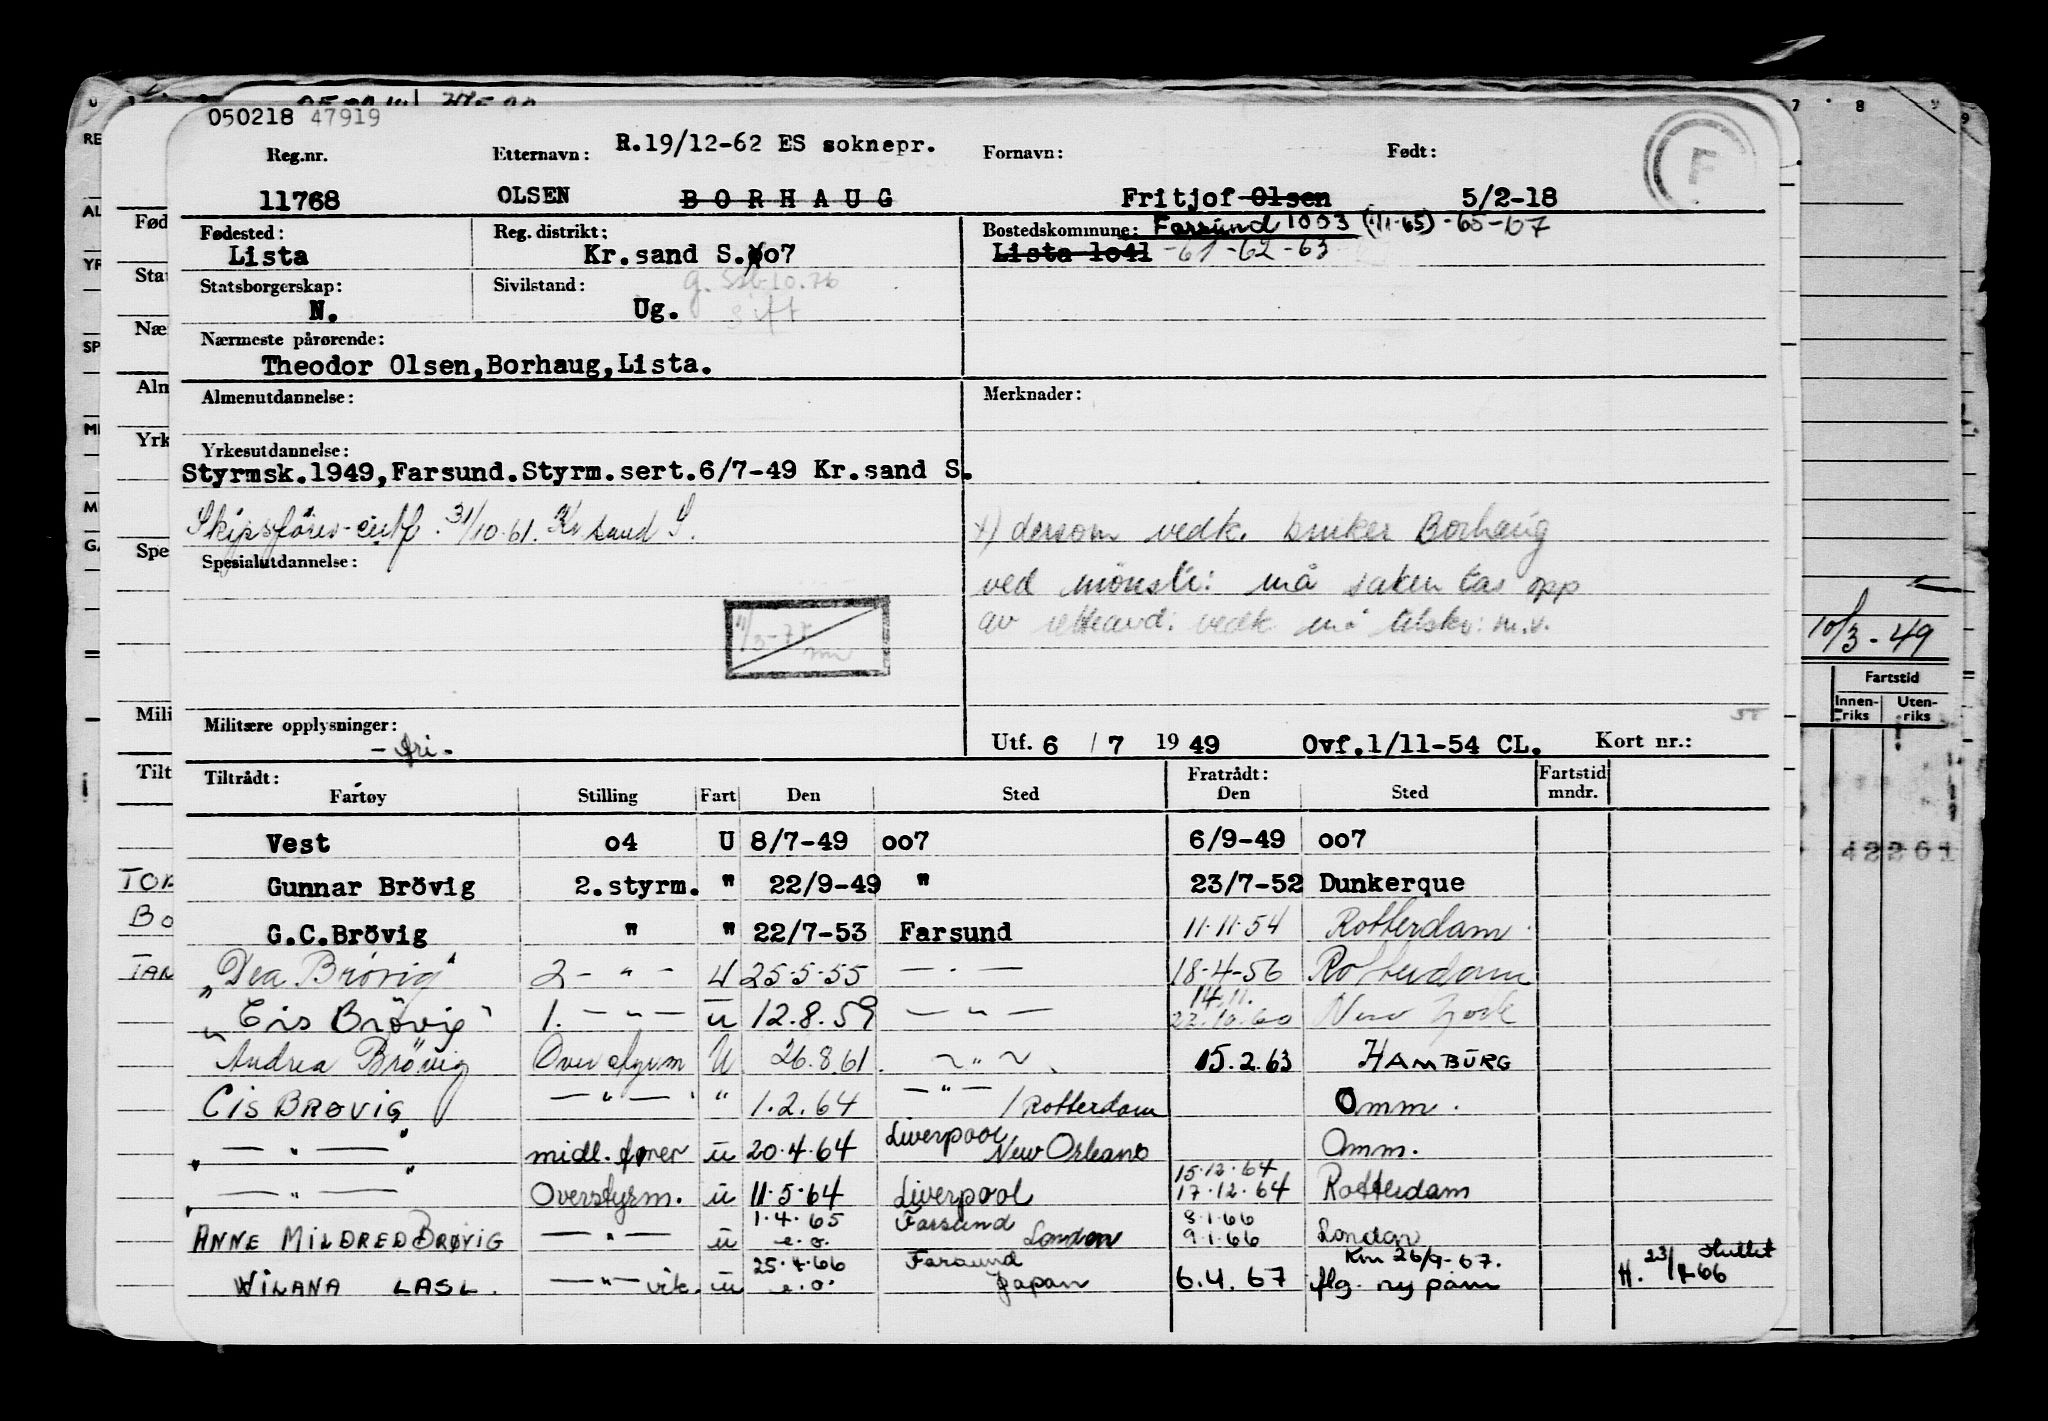 050218 47919
Reg.nr. Etternavn: R.19/12-62 ES soknepr. Fornavn: Født:
11768 OLSEN BORHAUG Fritjof Olsen 5/2-18
F
Fødested: Reg. distrikt: Bostedskommune: Farsund 1003 (1/1-65) -65-67
Lista Kr.sand S. oo7 Lista 1o41 -61-62-63
Statsborgerskap: Sivilstand: g.
N. Ug. gift
Nærmeste pårørende:
Theodor Olsen,Borhaug,Lista.
Almenutdannelse: Merknader:
Yrkesutdannelse:
Styrmsk.1949,Farsund.Styrm.sert.6/7-49 Kr.sand S.
Skipsförer-sertf. 31/10-61. Kr sand S.
x) dersom vedk. bruker Borhaug
Spesialutdannelse:
ved mönstr: må saken tas opp
av vedk. må
Militære opplysninger:
- fri -
Utf. 6 / 7 19 49 Ovf.1/11-54 CL. Kort nr.:
Tiltrådt: Fratrådt: Fartstid
Fartøy Stilling Fart Den Sted Den Sted mndr.
Vest o4 U 8/7-49 oo7 6/9-49 oo7
Gunnar Brövig 2.styrm. " 22/9-49 " 23/7-52 Dunkerque
G.C.Brövig " " 22/7-53 Farsund 11.11.54 Rotterdam.
"Dea Brøvig" 2 - " - U 25.5.55 — . — 18-4-56 Rotterdam
14.11.
"Cis Brövig" 1. — " — U 12.8.59 — " — 22.10.60 New York
Andrea Brövig Overstyrm U 26.8.61 ~ " ~ 15.2.63 HAMBURG
CIS BRØVIG — " — " 1.2.64 — " — / Rotterdam Omm.
" — " — " midl. fører ü 20.4.64 Liverpool New Orleans Omm.
15.12.64
" — " — " Overstyrm. ü 11.5.64 Liverpool 17.12.64 Rotterdam
1.4.65 Farsund 8.1.66
ANNE MILDRED BRØVIG — " — ü e.o. London 9.1.66 London
25.4.66 Farsund Km 26/9-67. sluttet
WILANA LASL. — " — vik. ü e.o. Japan 6.4.67 flg. ny påm H. 23/7-66
RE
AL
YR
SP
Fød
Stat
Næ
Alm
Yrk
Spe
Mili
Tilt
TOR
BO
TAN
7 8 9
10/3-49
Fartstid
Innen-riks Uten-riks
42261